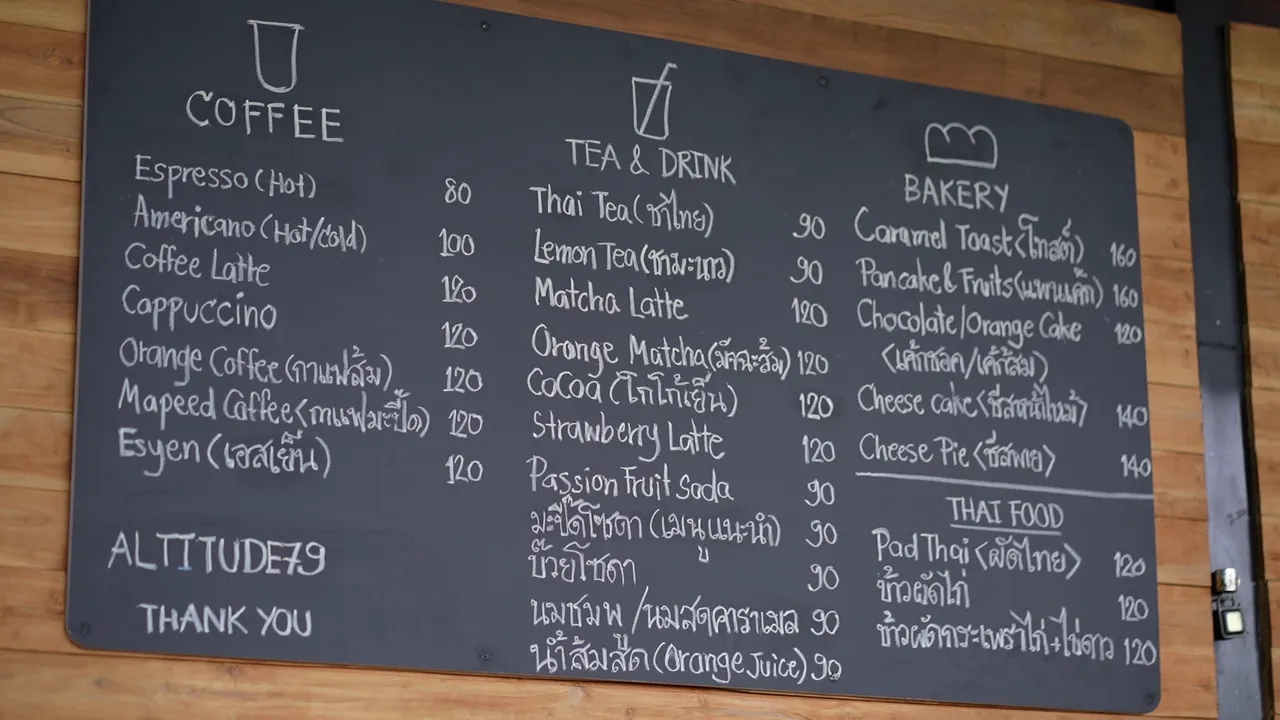 COFFEE
Espresso (Hot) 80
Americano (Hot/Cold) 100
Coffee Latte 120
Cappuccino 120
Orange Coffee (กาแฟส้ม) 120
Mapeed Coffee <กาแฟมะปี๊ด> 120
Esyen (เอสเย็น) 120
ALTITUDE79
THANK YOU
TEA & DRINK
Thai Tea (ชาไทย) 90
Lemon Tea (ชามะนาว) 90
Matcha Latte 120
Orange Matcha (มัจฉะส้ม) 120
CoCoa (โกโก้เย็น) 120
Strawberry Latte 120
Passion Fruit soda 90
มะปี๊ดโซดา (เมนูแนะนำ) 90
บ๊วยโซดา 90
นมชมพู /นมสดคาราเมล 90
น้ำส้มสด (Orange Juice) 90
BAKERY
Caramel Toast <โทสต์> 160
Pancake & Fruits (แพนเค้ก) 160
Chocolate/Orange Cake 120
<เค้กชอค/เค้กส้ม>
Cheese cake <ชีสหน้าไหม้> 140
Cheese Pie <ชีสพาย> 140
THAI FOOD
Pad Thai <ผัดไทย> 120
ข้าวผัดไก่ 120
ข้าวผัดกระเพราไก่+ไข่ดาว 120